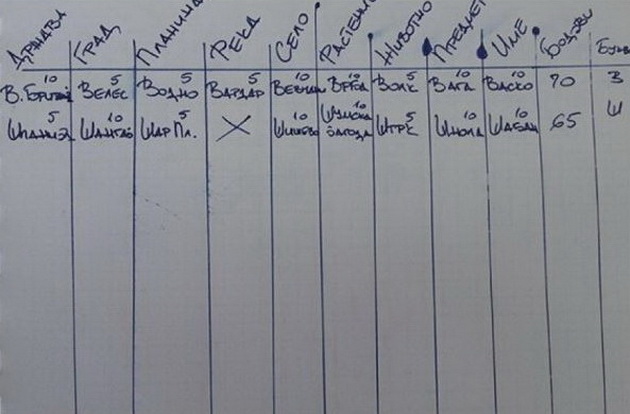 ДРЖАВА ГРАД ПЛАНИНА РЕКА СЕЛО РАСТЕНИЕ ЖИВОТНО ПРЕДМЕТ ИМЕ БОДОВИ
10 5 5 5 10 10 5 10 10
ВЕЛЕС ВОДНО ВАРДАР ВРБА ВОЛК ВАГА ВАСКО 70 В
5 10 5 10 10 5 10 10
ШПАНИЈА ШАНГАЈ ШАР ПЛ. X ШУМСКА ЈАГОДА ШТРК ШНОЛА ШАБАН 65 Ш